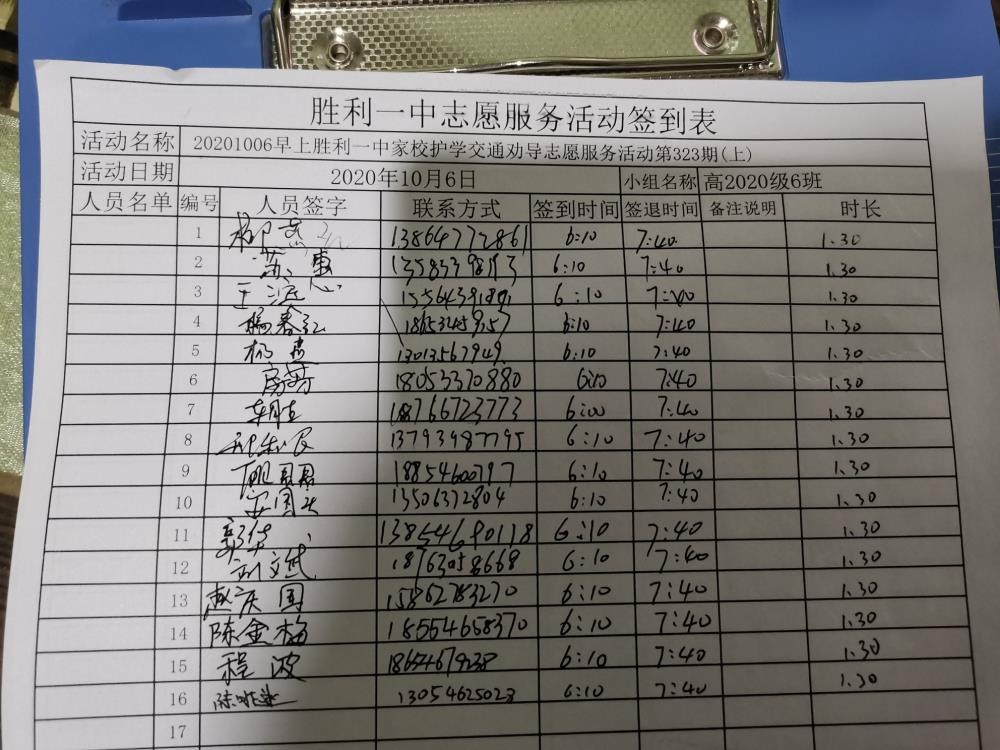 胜利一中志愿服务活动签到表
活动名称 20201006早上胜利一中家校护学交通劝导志愿服务活动第323期(上)
活动日期 2020年10月6日 小组名称 高2020级6班
人员名单 编号 人员签字 联系方式 签到时间 签退时间 备注说明 时长
1 13864772861 6:10 7:40 1.30
2 苏惠 6:10 7:40 1.30
3 6:10 7:40 1.30
4 杨春红 6:10 7:40 1.30
5 13013567949 6:10 7:40 1.30
6 18053370880 6:10 7:40 1.30
7 18766723773 6:00 7:40 1.30
8 13793987795 6:10 7:40 1.30
9 18854600797 6:10 7:40 1.30
10 13506372804 6:10 7:40 1.30
11 13854690118 6:10 7:40 1.30
12 刘文武 18763058668 6:10 7:40 1.30
13 赵庆国 15862783270 6:10 7:40 1.30
14 陈金梅 18554658370 6:10 7:40 1.30
15 程波 6:10 7:40 1.30
16 13054625023 6:10 7:40 1.30
17